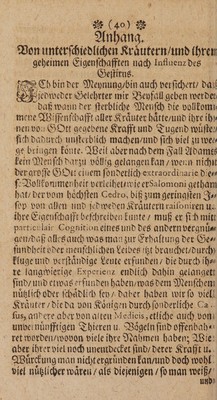 (40)
Anhang.
Von unterschiedlichen Kräutern/und ihren
geheimen Eigenschafften nach Influenz des
Gestirns.
Ich bin der Meynung/bin auch versichert/ daß
jedweder Gelehrter mir Beyfall geben werde/
daß wann der sterbliche Mensch die vollkom
mene Wissenschafft aller Kräuter hätte/und ihre ih
nen von GOtt gegebene Krafft und Tugend wüste/
sich dadurch unsterblich machen/und sich viel zu we
ge bringen könte. Weil aber nach dem Fall Adams
kein Mensch darzu völlig gelangen kan/ wenn nicht
der grosse GOtt einem sonderlich extraordinarie die
se Vollkommenheit verleihet/wie er Salomoni gethan
hat/ der vom höchsten Cedro, biß zum geringsten
sop von allen und jedweden Kräutern und
ihre Eigenschafft beschreiben kunte/ muß er sich mit
particulair Cognition eines und des andern vergnü-
gen/daß alles auch was man zur Erhaltung der Ge-
sundheit der menschlichen Leiber itzt brauchet/durch
kluge und verständige Leute erfunden/ die durch ih-
re langwierige Experienz endlich dahin gelanget
sind/und etwas erfunden haben/was dem Menschen
nützlich oder schädlich sey/ daher haben wir so viel
Kräuter/ die da von Königen durch sonderliche Ca-
sus, andere aber von alten Medicis, etliche auch von
unvernünfftigen Thieren u. Vögeln sind offenbah-
ret worden/wovon viele ihre Nahmen haben; Wie
aber ihrer viel noch unentdecket sind/ derer Krafft u.
Würckung man nicht ergründen kan/und doch wohl
viel nützlicher wären/ als diejenigen/ so man weiß/
und